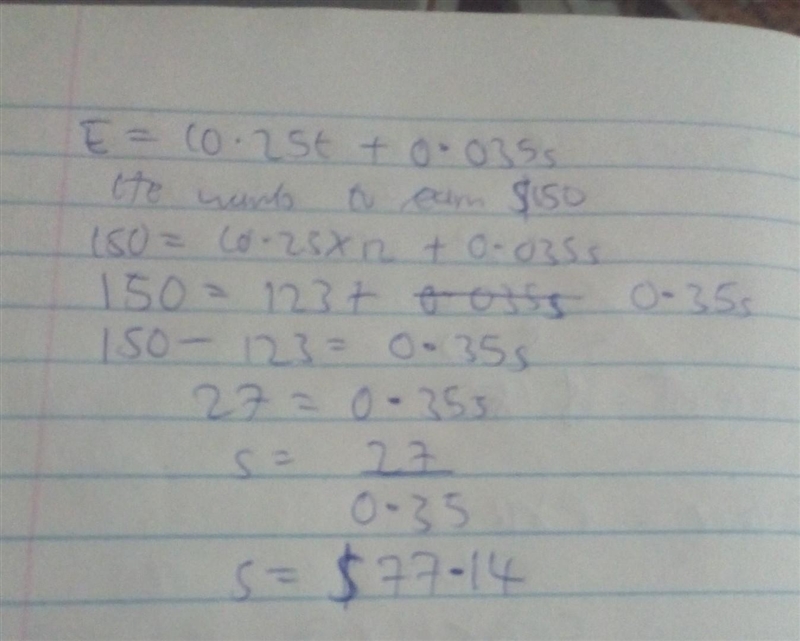 E = 10.25t + 0.035s
He wants to earn $150
150 = 10.25×12 + 0.035s
150 = 123 + 0.035s 0.35s
150 - 123 = 0.35s
27 = 0.35s
s = 27
0.35
s = $77.14